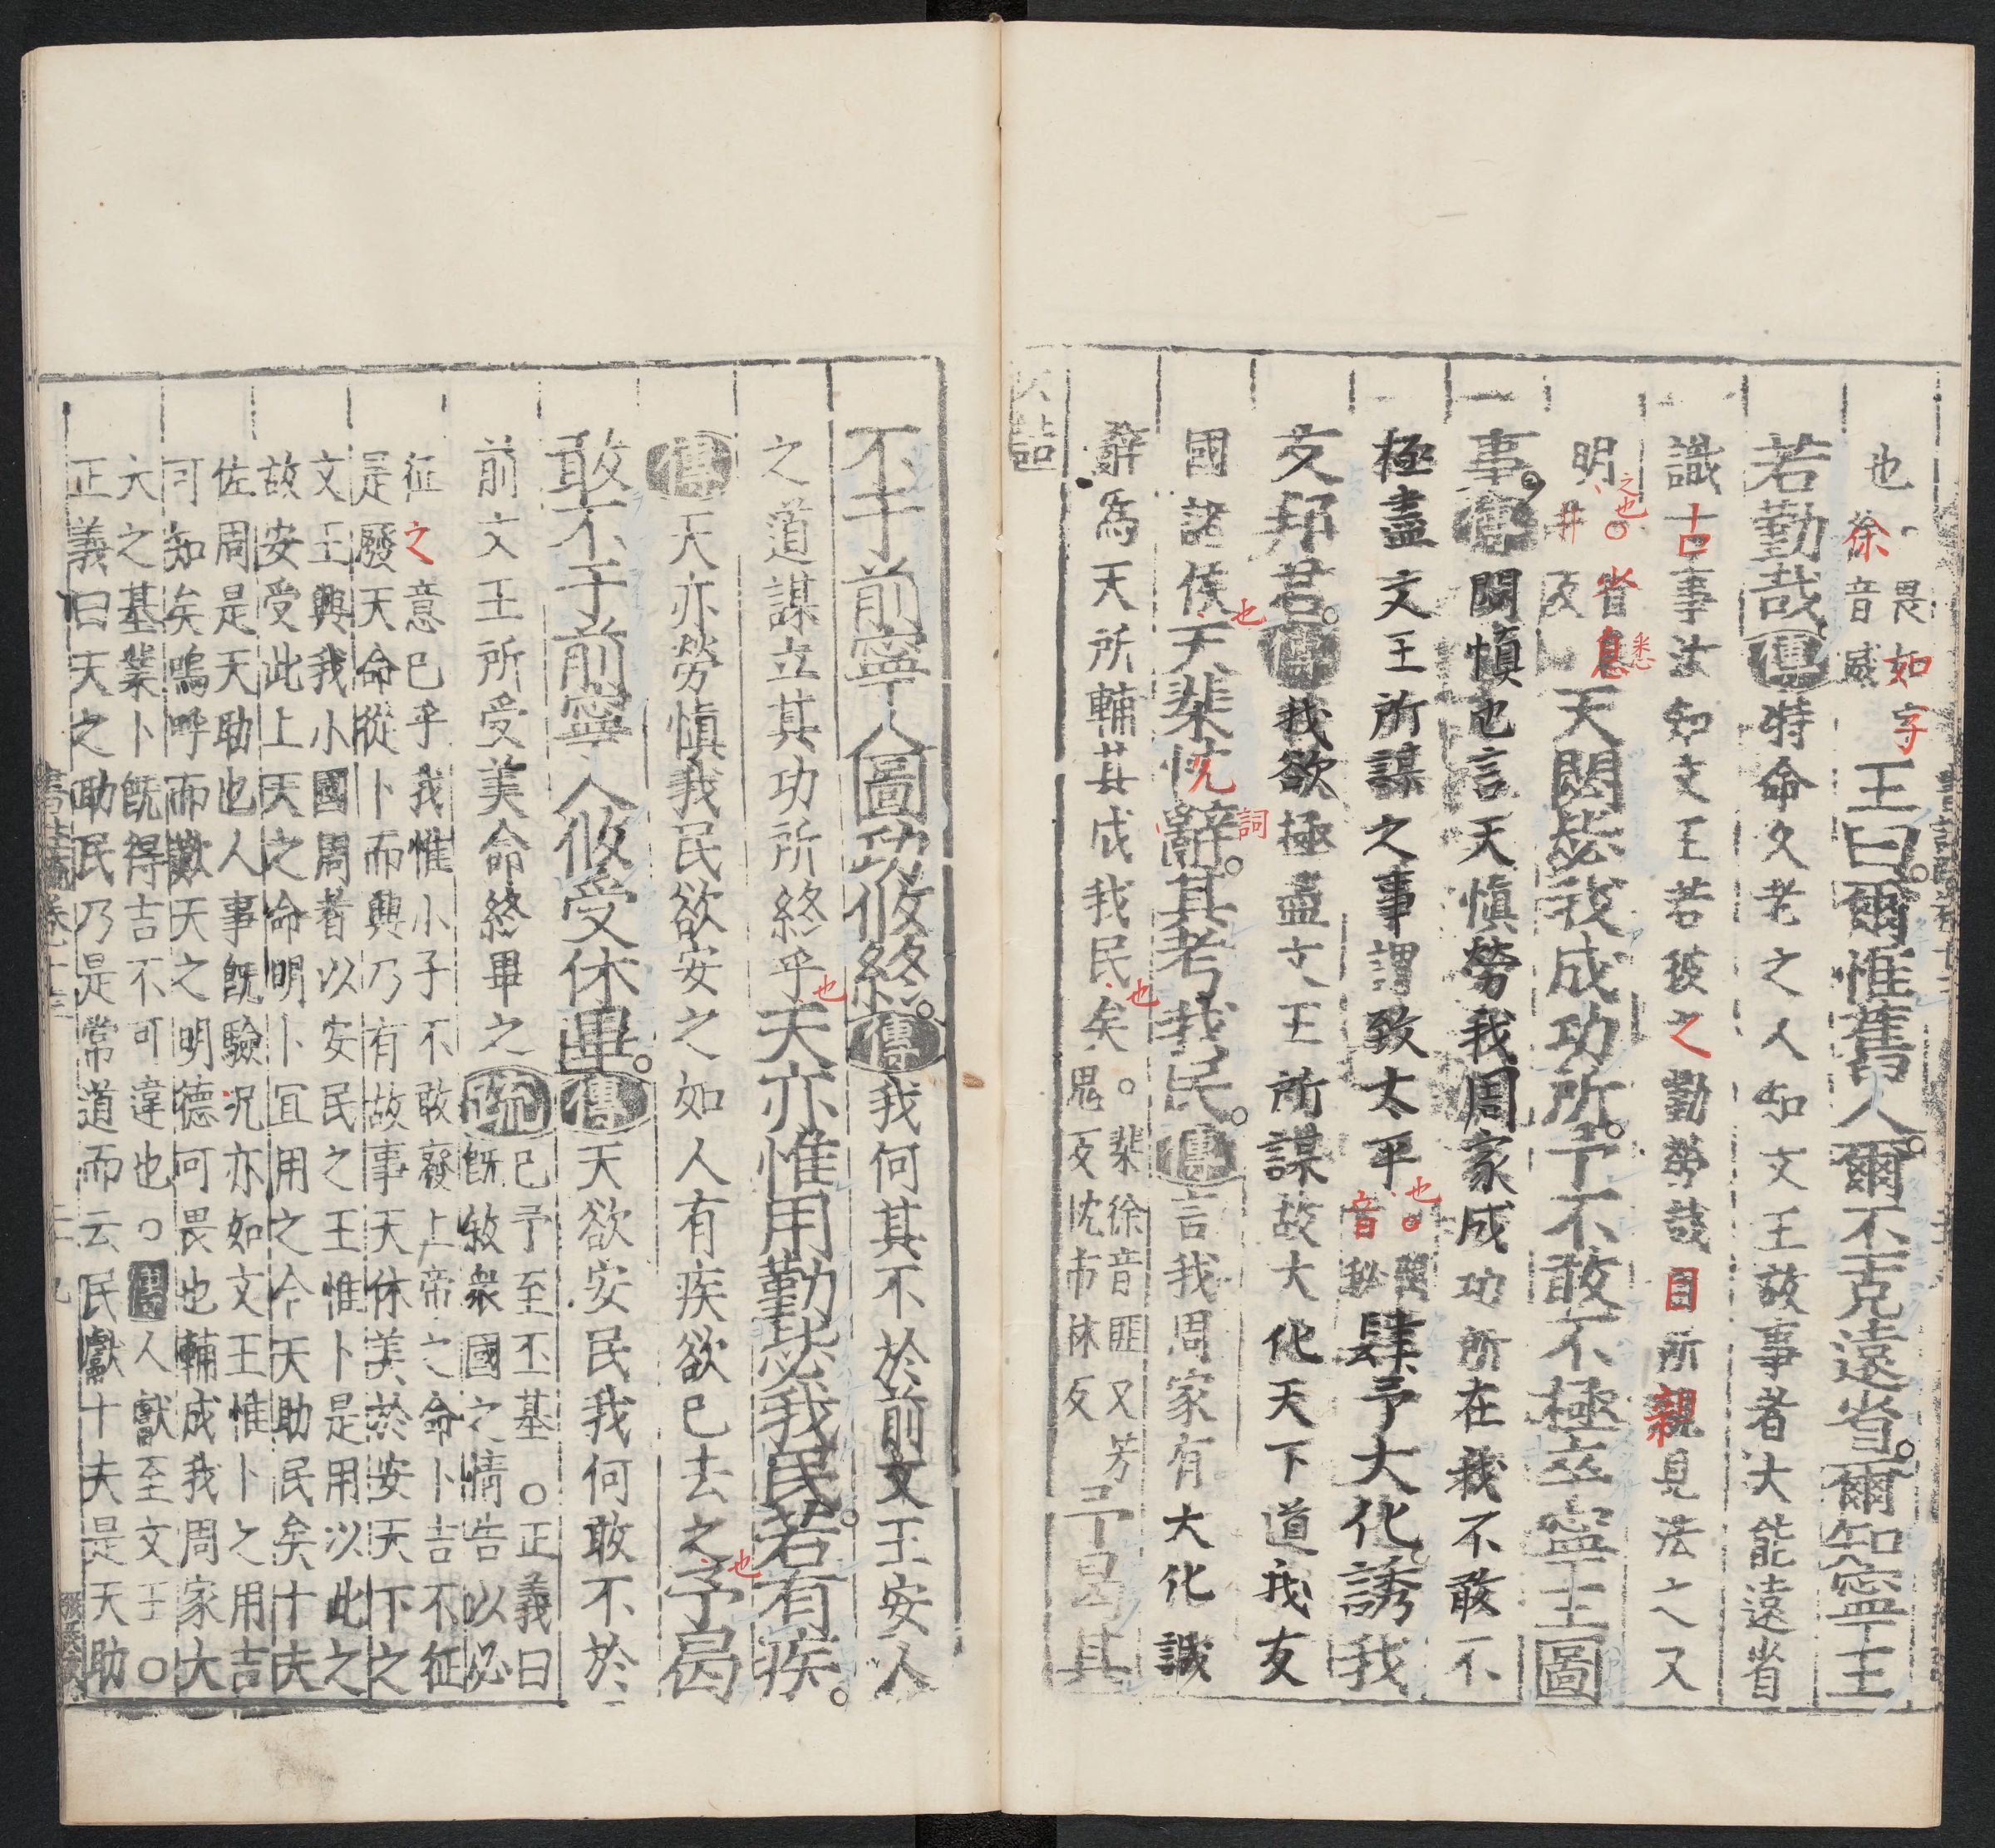 也
畏如字
徐音威
王曰爾惟舊人爾不克遠省爾知寧王
若勤哉傳特命久老之人知文王故事者大能遠省
識古事汝知文王若彼之勤勞哉目所親見法之又
明之也。省息悉
井反
天閟毖我成功所予不敢不極卒寧王圖
事傳閟慎也言天慎勞我周家成功所在我不敢不
極盡文王所謀之事謂致太平也。閟
音祕
肆予大化誘我
友邦君傳我欲極盡文王所謀故大化天下道我友
國諸侯也天棐忱辭詞其考我民傳言我周家有大化誠
辭爲天所輔其成我民也矣。棐徐音匪又芳
鬼反忱市林反
予曷其
大誥
不于前寧人圖功攸終傳我何其不於前文王安人
之道謀立其功所終乎也天亦惟用勤毖我民若有疾
傳天亦勞慎我民欲安之如人有疾欲已去之也予曷
敢不于前寧人攸受休畢傳天欲安民我何敢不於
前文王所受美命終畢之疏已予至丕基○正義曰
既敘衆國之情告以必
征之意已乎我惟小子不敢廢上帝之命卜吉不征
是廢天命從卜而興乃有故事天休美於安天下之
文王興我小國周者以安民之王惟卜是用以此之
故安受此上天之命明卜宜用之今天助民矣十夫
佐周是天助也人事既驗況亦如文王惟卜之用吉
可知矣嗚呼而歎天之明德可畏也輔成我周家大
大之基業卜既得吉不可違也○傳人獻至文王○
正義曰天之助民乃是常道而云民獻十夫是天助
書註疏卷十三
二十九